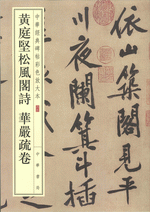 中華經典碑帖彩色放大本
黃庭堅松風閣詩 華嚴疏卷
中華書局
依山築閣見平
川夜闌箕斗插